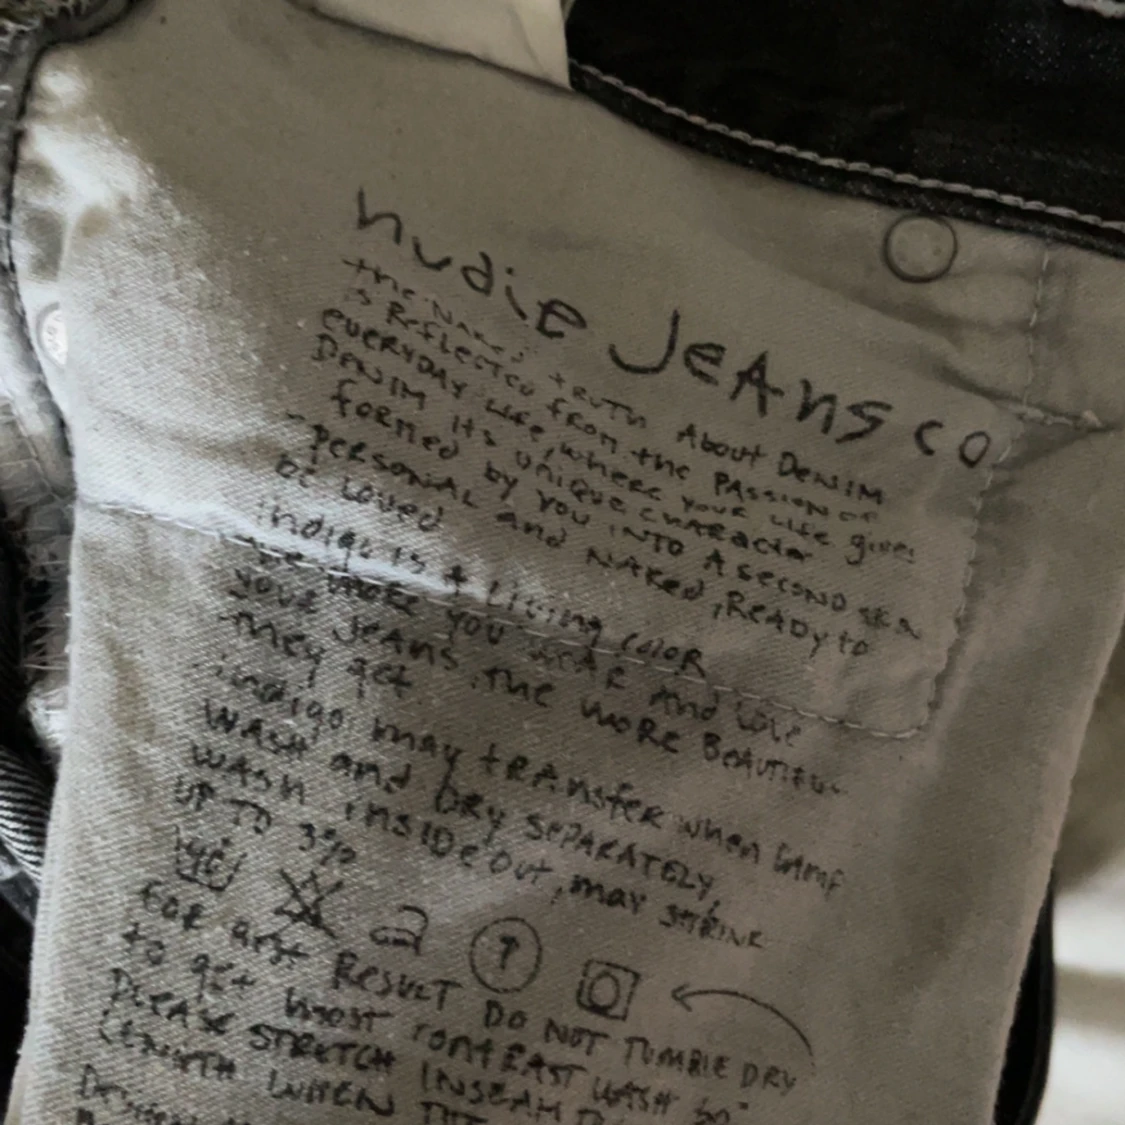 nudie JEANS CO
the NAKED tRUTH About DENIM
is REFLECTED from the PASSION OF
EVERYDAY LIFE, where YOUR LIFE gives
DENIM its UNIQUE CHARACTER
formed by YOU INTO A SECOND SKIN
- PERSONAL and NAKED, READY to
be Loved
indigo is A Living COLOR
the MORE YOU WEAR AND LOVE
YOUR JEANS, the MORE BEAUTIFUL
they get
indigo may tRANSfer when DAMP
WASH and DRY SEPARATELY,
WASH inside out, may SHRINK
UP TO 3%
40
FOR BEST RESULT DO NOT TUMBLE DRY
to get most CONTRAST WASH 60°
PLEASE STRETCH INSEAM TO
LENGTH WHEN